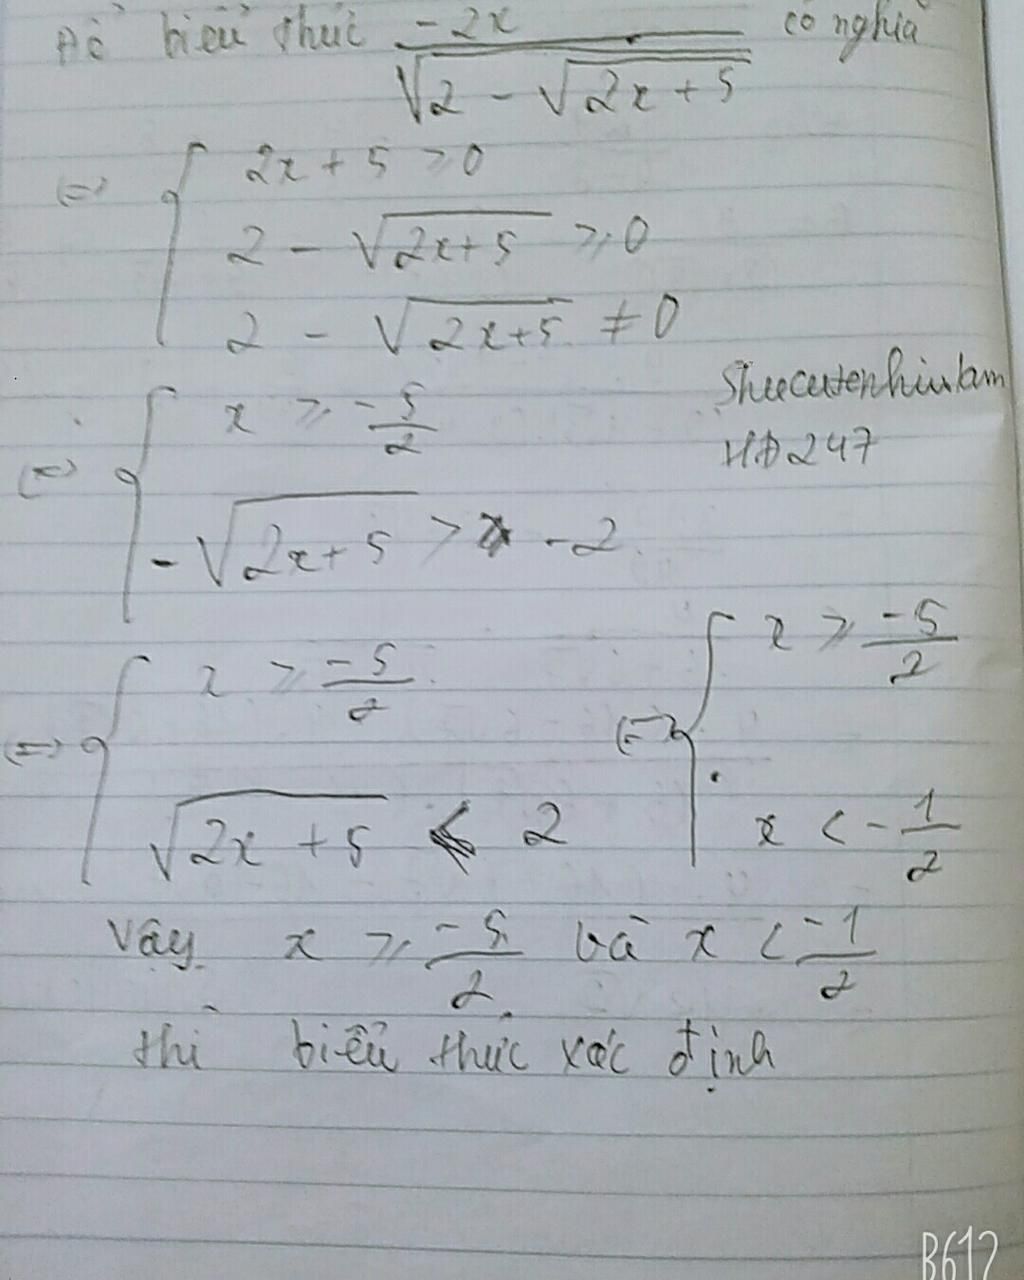 Để biểu thức $\frac{-2x}{\sqrt{2-\sqrt{2x+5}}}$ có nghĩa
⇔ { 2x + 5 ≥ 0
2 - √(2x+5) ≥ 0
2 - √(2x+5) ≠ 0
Shuecutenhiulam
HĐ247
⇔ { x ≥ -5/2
-√(2x+5) > -2
⇔ { x ≥ -5/2
√(2x+5) < 2
⇔ { x ≥ -5/2
x < -1/2
Vậy x ≥ -5/2 và x < -1/2
thì biểu thức xác định
B612